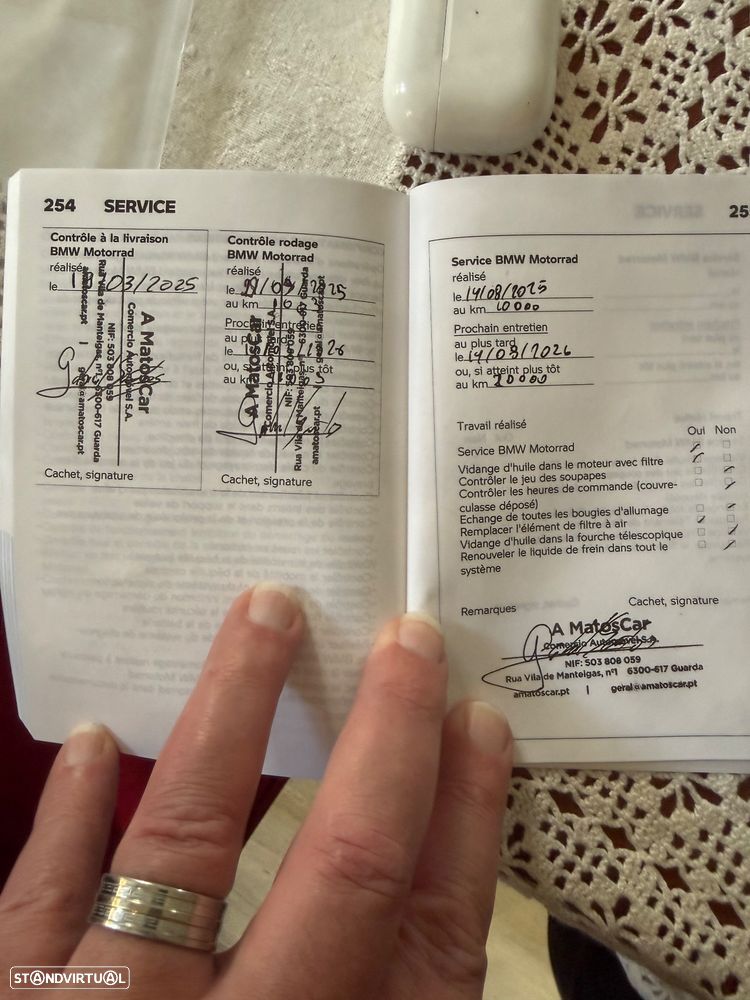 254 SERVICE
Contrôle à la livraison
BMW Motorrad
réalisé
le 03/2025
A MatosCar
Comercio Automóvel S.A.
NIF: 503 808 059
Rua Vila de Manteigas, nº1 6300-617 Guarda
amatoscar.pt | geral@amatoscar.pt
Cachet, signature
Contrôle rodage
BMW Motorrad
réalisé
le
au km
Prochain entretien
au plus tard
le
ou, si atteint plus tôt
au km
A MatosCar
Comercio Automóvel S.A.
NIF: 503 808 059
Rua Vila de Manteigas, nº1 6300-617 Guarda
amatoscar.pt | geral@amatoscar.pt
Cachet, signature
25
Service BMW Motorrad
réalisé
le 14/08/2025
au km 10000
Prochain entretien
au plus tard
le 14/08/2026
ou, si atteint plus tôt
au km 20000
Travail réalisé
Oui Non
Service BMW Motorrad
Vidange d'huile dans le moteur avec filtre
Contrôler le jeu des soupapes
Contrôler les heures de commande (couvre-
culasse déposé)
Echange de toutes les bougies d'allumage
Remplacer l'élément de filtre à air
Vidange d'huile dans la fourche télescopique
Renouveler le liquide de frein dans tout le
système
Remarques Cachet, signature
A MatosCar
Comercio Automóvel S.A.
NIF: 503 808 059
Rua Vila de Manteigas, nº1 6300-617 Guarda
amatoscar.pt | geral@amatoscar.pt
STANDVIRTUAL